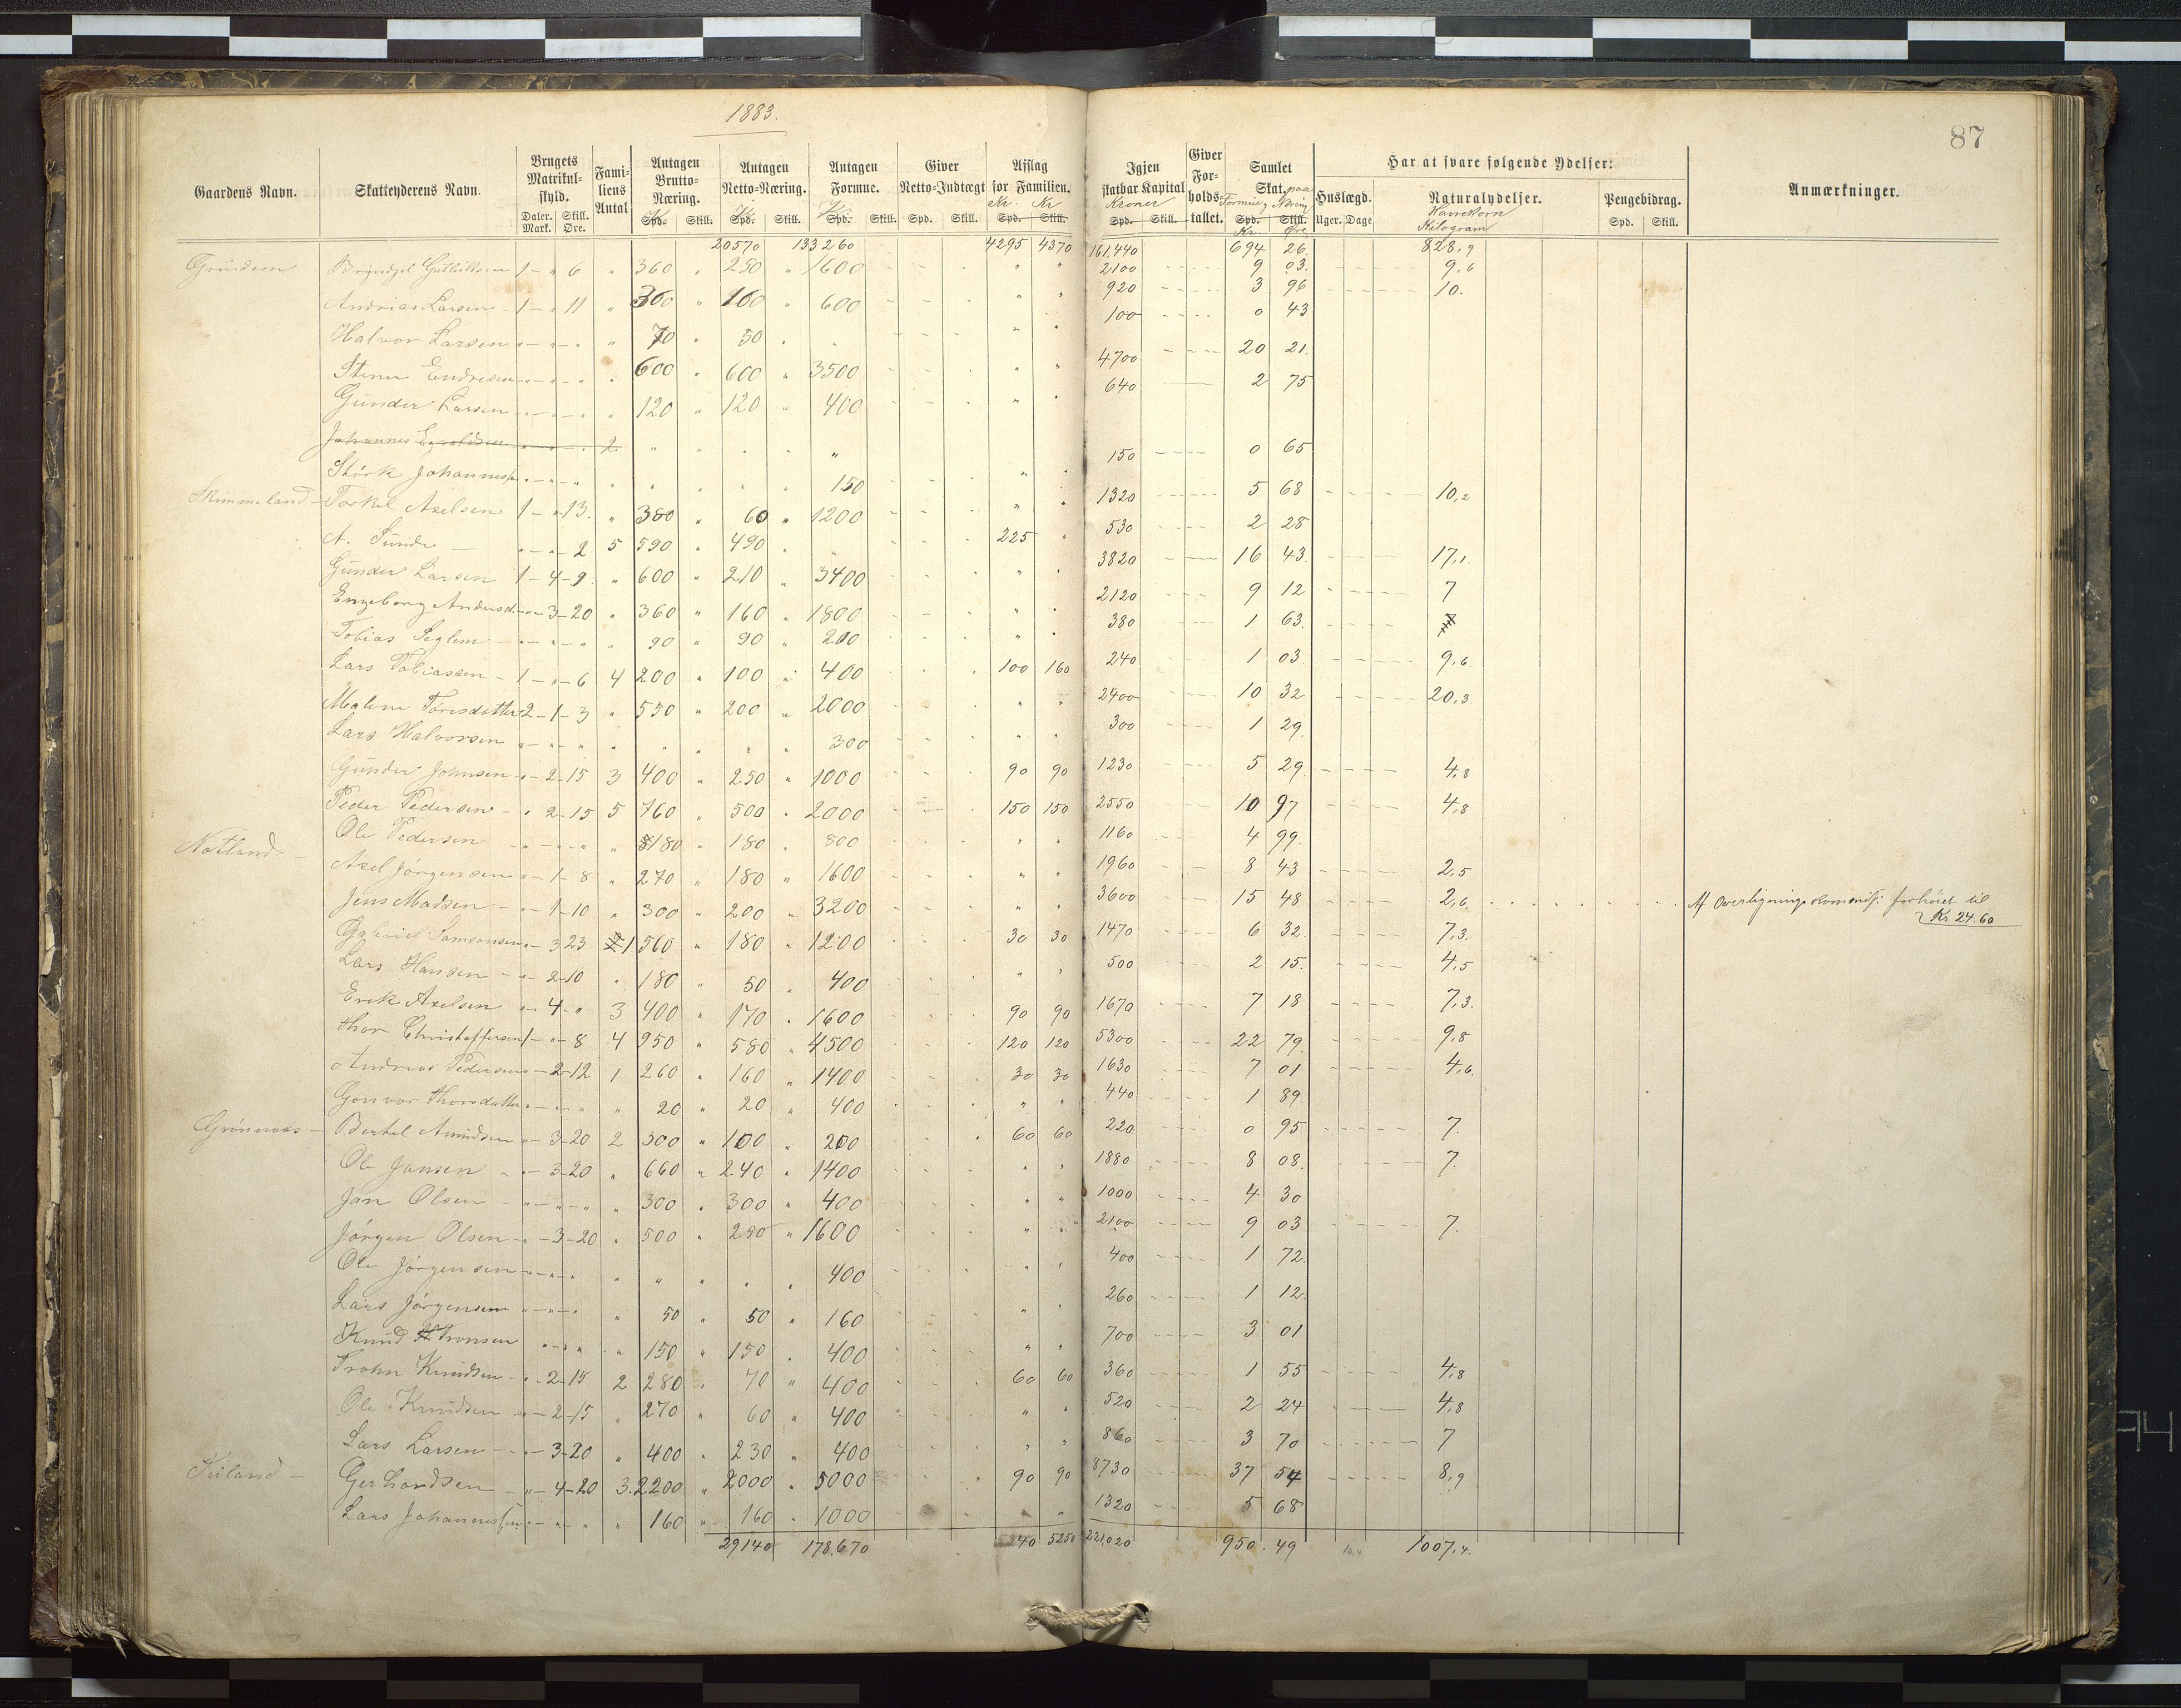 1883.
87
Gaardens Navn. Skatteyderens Navn. Brugets Matrikul-skyld. Daler. Skill. Mark. Øre. Familiens Antal Antagen Brutto-Næring. Spd. Skill. Antagen Netto-Næring. Spd. Skill. Antagen Formue. Spd. Skill. Giver Netto-Indtægt Spd. Skill. Afslag for Familien. Kr. Kr Spd. Skill. Igjen skatbar Kapital Kroner Spd. Skill. Giver For-holds-tallet. Samlet Skat. paa Formue og Næring Spd. Skill. Kr Øre Har at svare følgende Ydelser: Huslægd. Uger. Dage Naturalydelser. Havrekorn Kilogram Pengebidrag. Spd. Skill. Anmærkninger.
20570 133260 4295 4370 161,440 694 26. 828,9
Grundem Bryngel Gutliksen 1 - " 6 " 360 " 250 " 1600 " " 2100 9 03. 9,6
Andrias Larsen - 1 - " 11 " 300 " 160 " 600 " " 920 3 96 10.
Halvor Larsen " - " - " " 70 " 50 " " " " 100 0 43
Stener Endresen " - " - " " 600 " 600 " 3500 " " 4700 20 21.
Gunder Larsen " - " - " " 120 " 120 " 400 " " 640 2 75
Johannes 2 " " " " "
Stÿrk Johannessen " - " - " " " " " " 150 " " 150 0 65
Skimmeland - Torkel Axelsen 1 - " 13. " 380 " 60 " 1200 " " 1320 5 68 10,2
A. Sunde - " - " - 2. 5 590 " 490 " " 225 " 530 2 28
Gunder Larsen 1 - 4 - 9. " 600 " 210 " 3400 " " 3820 16 43. 17,1.
Engeborg Andersd. " - 3 - 20 " 360 " 160 " 1800 " " 2120 9 12 7
Tobias Seglem " - " - " " 90 " 90 " 200 " " 380 1 63.
Lars Tobiassen - 1 - " - 6 4 200 " 100 " 400 100 160 240 1 03. 9,6.
Malene Tóresdatter 2 - 1 - 3 " 550 " 200 " 2000 " " 2400 10 32 20,3
Lars Halvorsen " - " - " " " " " " 300 " " 300 1 29.
Gunder Johnsen " - 2 - 15 3 400 " 250 " 1000 90 90 1230 5 29. 4,8
Peder Pedersen - " 2 - 15 5 760 " 500 " 2000 150 150 2550 10 97 4,8
Notland - Ole Pedersen " - " - " " 180 " 180 " 800 " " 1160 4 99.
Axel Jørgensen " - 1 - 8 " 270 " 180 " 1600 " " 1960 8 43 2,5
Jens Madsen - " - 1 - 10 " 300 " 200 " 3200 " " 3600 15 48 2,6. Af Overlignings kommiss: forhöiet til
Kr 24.60
Gabriel Samsonsen " - 3 23 1 560 " 180 " 1200 30 30 1470 6 32. 7,3.
Lars Hansen - " - 2 - 10 " 180 " 50 " 400 " " 500 2 15. 4,5
Erik Axelsen " - 4 - " 3 400 " 170 " 1600 90 90 1670 7 18 7,3.
Thor Christoffersen 1 - " - 8 4 950 " 580 " 4500 120 120 5300 22 79. 9,8
Andreas Pedersen " - 2 - 12 1 260 " 160 " 1400 30 30 1630 7 01 4,6.
Gonvor Thorsdatter " - " - " " 20 " 20 " 400 " " 440 1 89.
Grónnaas - Bertel Amundsen " - 3 - 20 2 300 " 100 " 200 60 60 220 0 95 7.
Ole Jansen - " - 3 - 20 " 660 " 240 " 1400 " " 1880 8 08. 7.
Jan Olsen - " - " - " " 300 " 300 " 400 " " 1000 4 30
Jórgen Olsen - " - 3 - 20 " 500 " 250 " 1600 " " 2100 9 03 7.
Ole Jórgensen " - " - " " " " " " 400 " " 400 1 72.
Lars Jórgensen " - " - " " 50 " 50 " 160 " " 260 1 12
Knud Tronsen " - " - " " 150 " 150 " 400 " " 700 3 01
Trohn Knudsen - " - 2 - 15 2 280 " 70 " 400 60 60 360 1 55 4,8
Ole Knudsen " - 2 - 15 " 270 " 60 " 400 " " 520 2 24 4,8
Lars Larsen - " - 3 - 20 " 400 " 230 " 400 " " 860 3 70 7
Gerhardsen - " - 4 - 20 3. 2200 " 2000 " 5000 90 90 8730 37 54 8,9
Lars Johannessen " - " - " " 160 " 160 " 1000 " " 1320 5 68
29140 178,670 5340 5250 221,020 950. 49 1007,4.